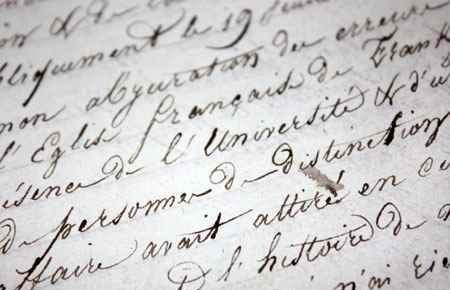 de
bliquement le 19
mon abjuration des erreurs
l'Eglise française de Frank
ésence de l'Université & d'u
de personnes de distinction
affaire avait attiré en
D l'histoire de
n'ai rie